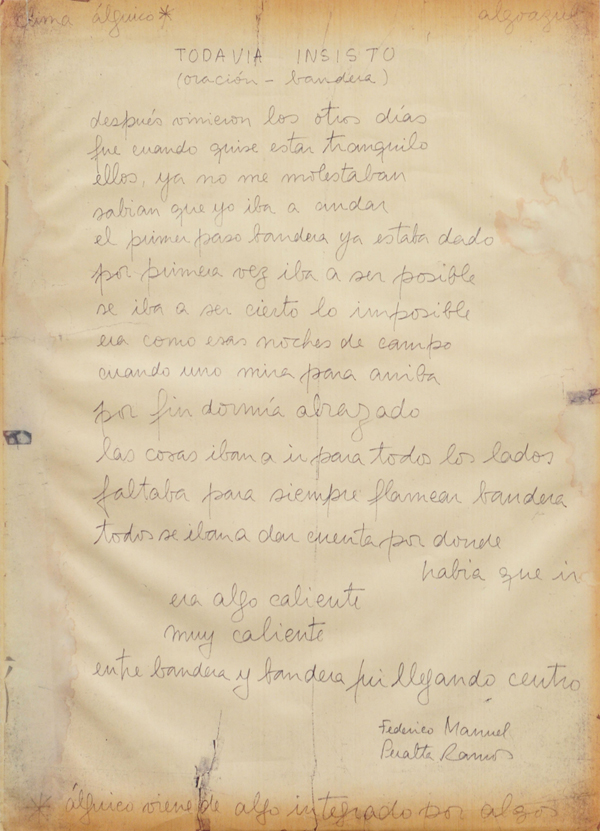 clima álguico* algoazul
TODAVIA INSISTO
(oración - bandera)
después vinieron los otros días
fue cuando quise estar tranquilo
ellos, ya no me molestaban
sabian que yo iba a andar
el primer paso bandera ya estaba dado
por primera vez iba a ser posible
se iba a ser cierto lo imposible
era como esas noches de campo
cuando uno mira para arriba
por fin dormía abrazado
las cosas iban a ir para todos los lados
faltaba para siempre flamear bandera
todos se iban a dar cuenta por donde
habia que ir
era algo caliente
muy caliente
entre bandera y bandera fui llegando centro
Federico Manuel
Peralta Ramos
* álguico viene de algo integrado por algos